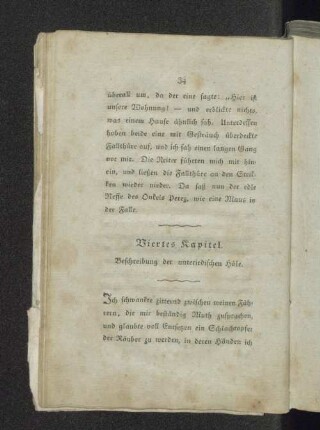 34
überall um, da der eine sagte: „Hier ist
unsere Wohnung! — und erblickte nichts,
was einem Hause ähnlich sah. Unterdessen
hoben beide eine mit Gesträuch überdeckte
Fallthüre auf, und ich sah einen langen Gang
vor mir. Die Reiter führten mich mit hin-
ein, und ließen die Fallthüre an den Stri-
cken wieder nieder. Da saß nun der edle
Neffe des Onkels Perez, wie eine Maus in
der Falle.
Viertes Kapitel.
Beschreibung der unterirdischen Höle.
Ich schwankte zitternd zwischen meinen Füh-
rern, die mir beständig Muth zusprachen,
und glaubte voll Entsetzen ein Schlachtopfer
der Räuber zu werden, in deren Händen ich